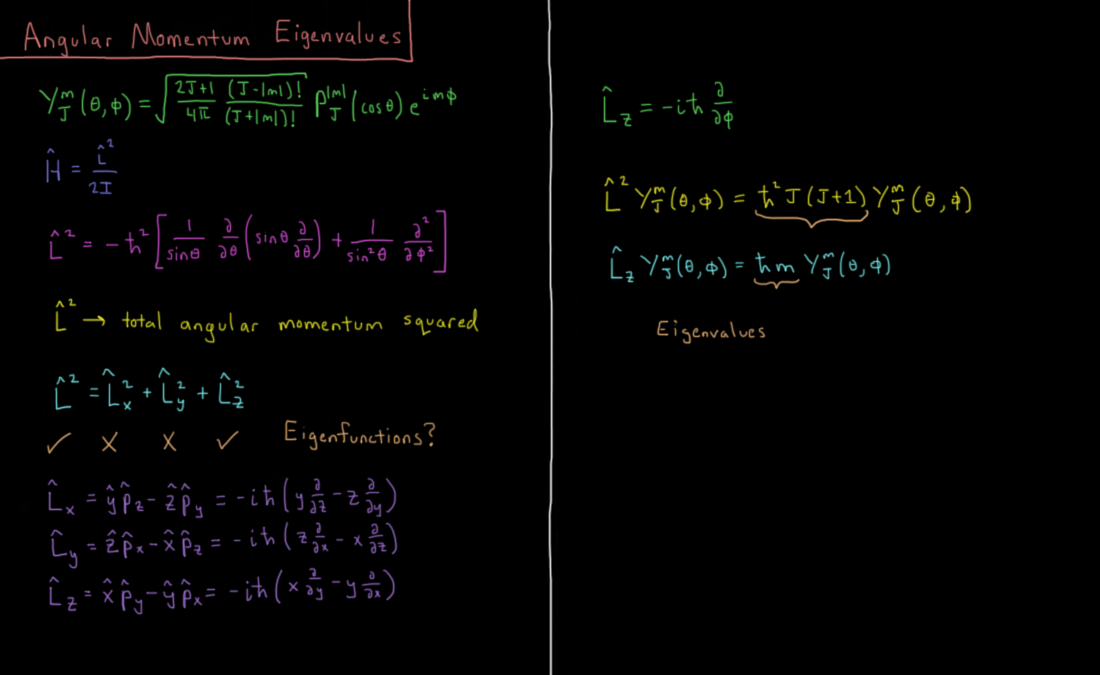 Angular Momentum Eigenvalues
Y_J^m(θ,φ) = √((2J+1)/(4π) (J-|m|)!/(J+|m|)!) P_J^|m|(cosθ) e^{imφ}
Ĥ = L̂²/2I
L̂² = -ħ² [1/sinθ ∂/∂θ (sinθ ∂/∂θ) + 1/sin²θ ∂²/∂φ²]
L̂² → total angular momentum squared
L̂² = L̂_x² + L̂_y² + L̂_z²
✓ X X ✓ Eigenfunctions?
L̂_x = ŷp̂_z - ẑp̂_y = -iħ(y ∂/∂z - z ∂/∂y)
L̂_y = ẑp̂_x - x̂p̂_z = -iħ(z ∂/∂x - x ∂/∂z)
L̂_z = x̂p̂_y - ŷp̂_x = -iħ(x ∂/∂y - y ∂/∂x)
L̂_z = -iħ ∂/∂φ
L̂² Y_J^m(θ,φ) = ħ² J(J+1) Y_J^m(θ,φ)
L̂_z Y_J^m(θ,φ) = ħm Y_J^m(θ,φ)
Eigenvalues